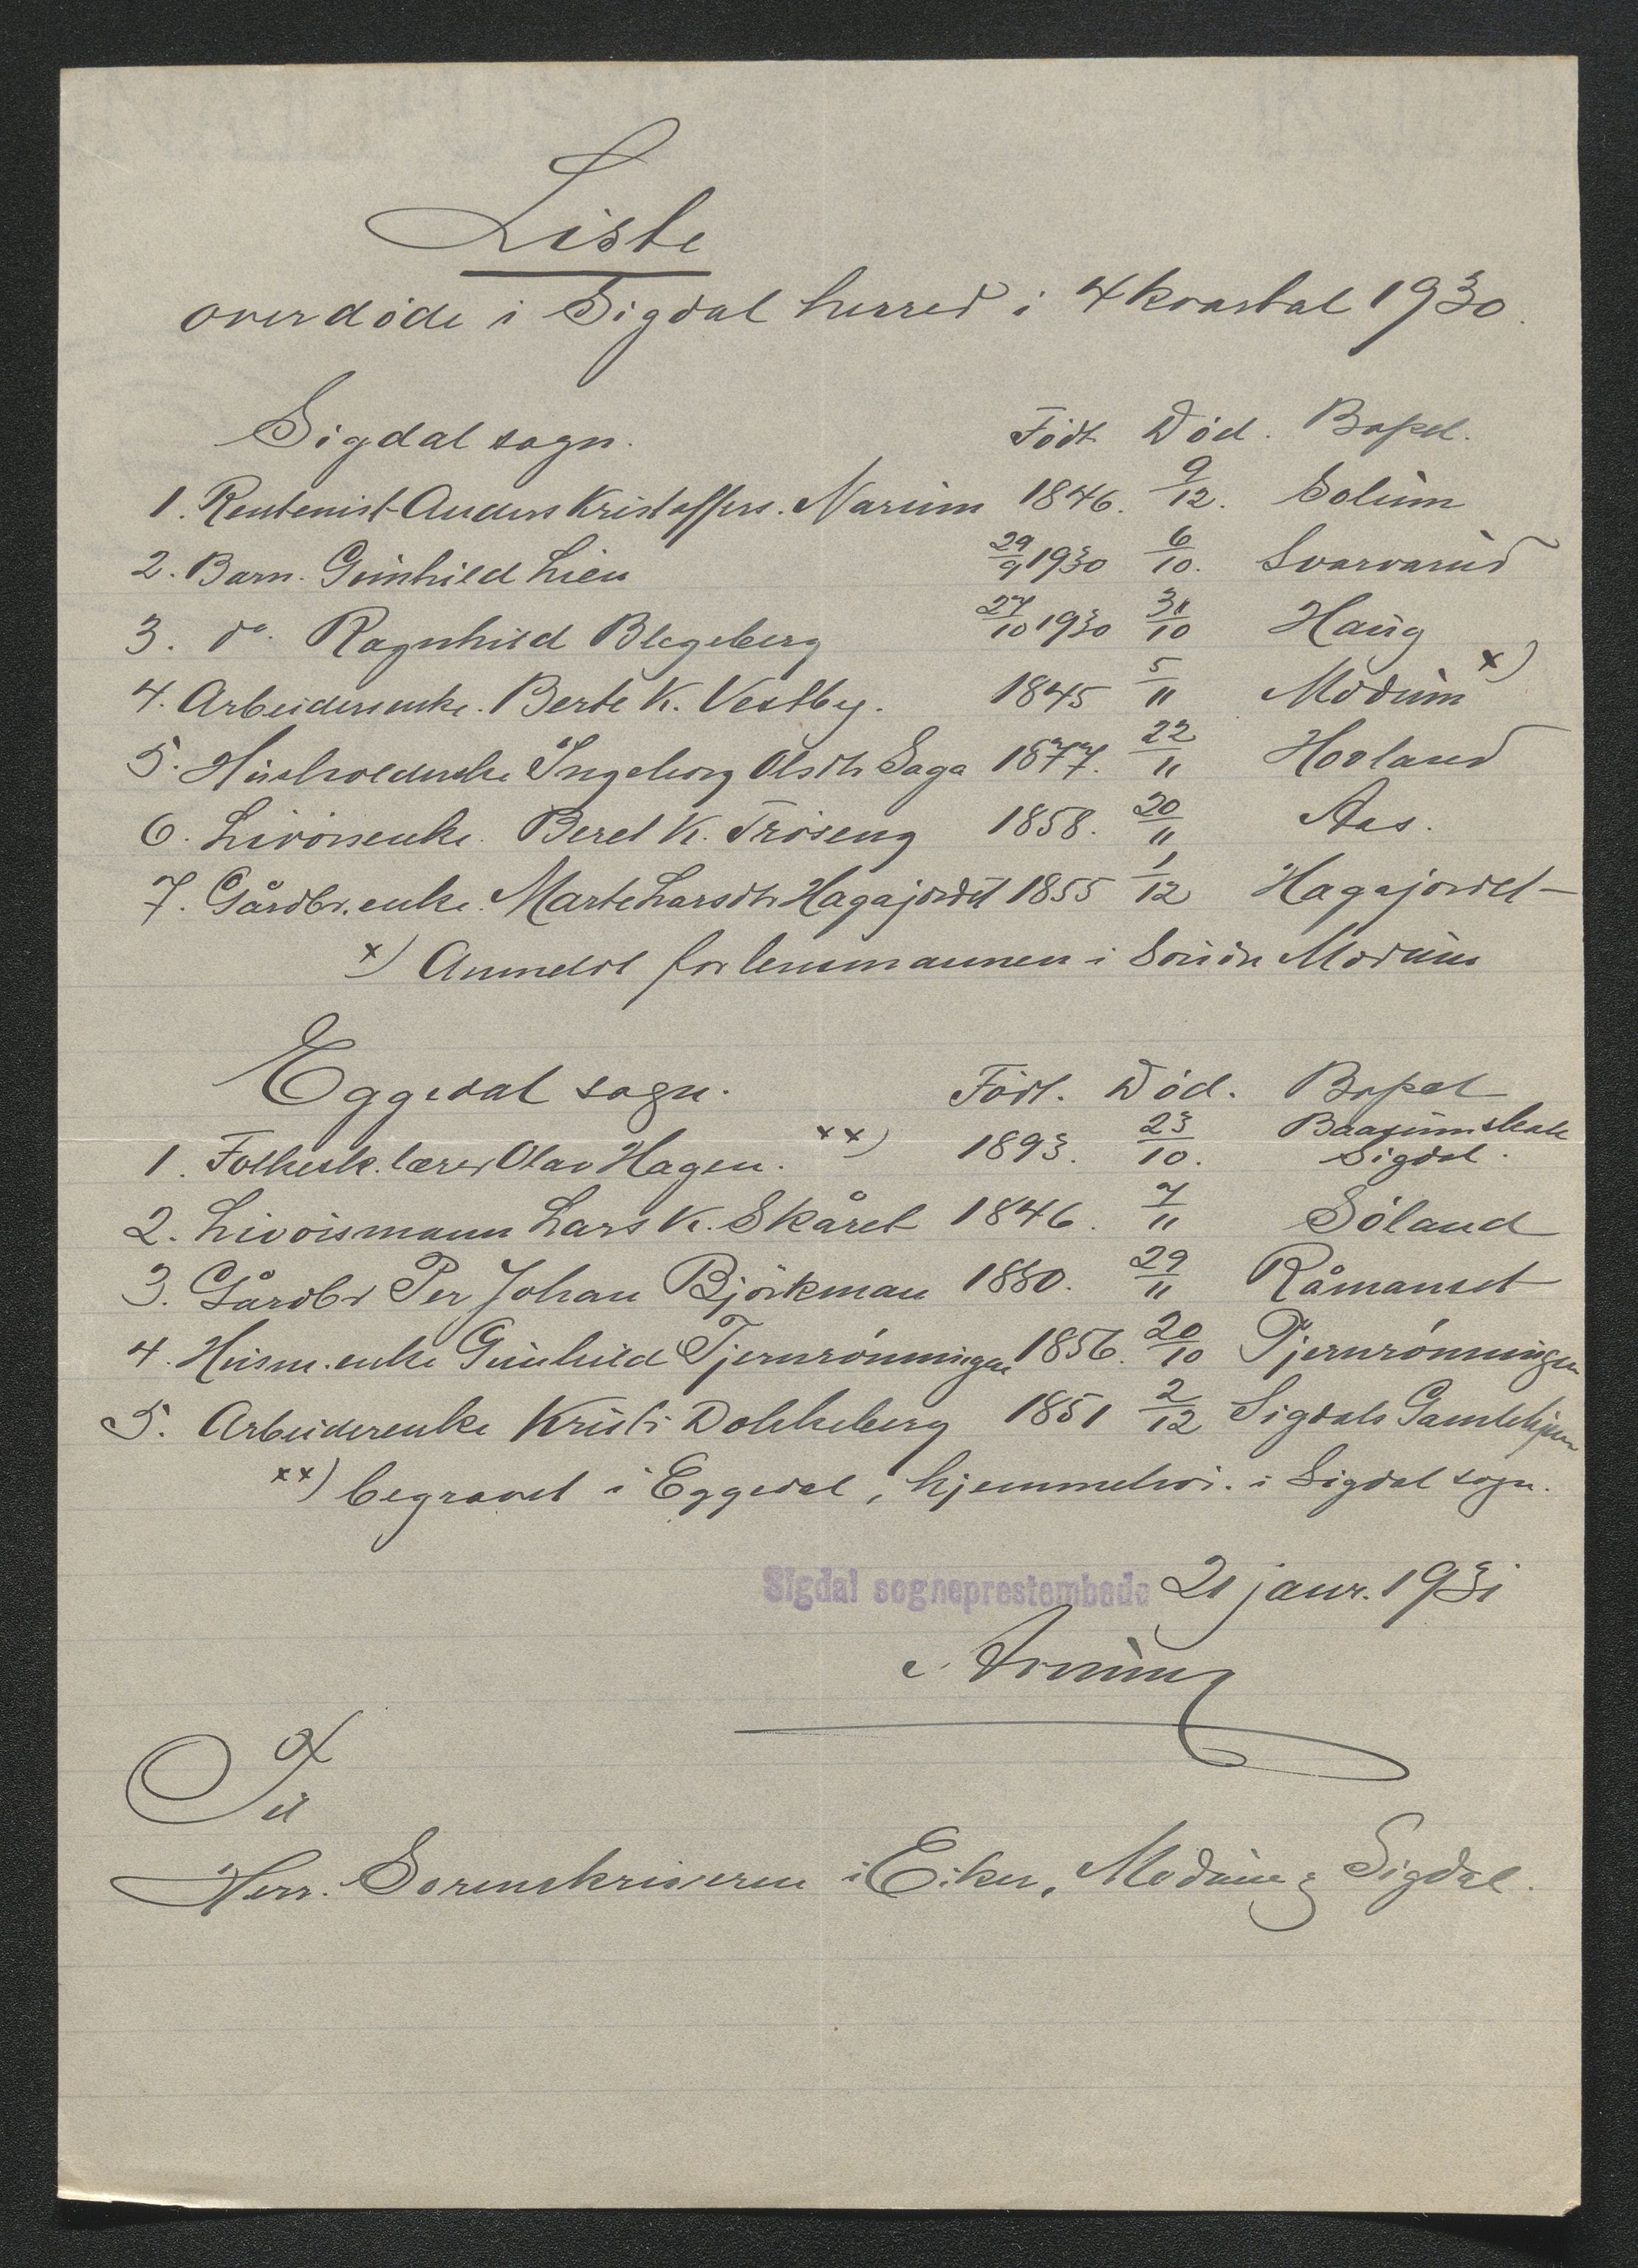 Liste
over døde i Sigdal herred i 4 kvartal 1930.
Sigdal sogn. Født Død. Bopel.
1. Rentenist Anders Kristoffers. Narum 1846. 9/12. Solum
2. Barn. Gunhild Lien 29/9 1930 6/10. Svarvarud
3. do. Ragnhild Blegeberg 27/10 1930 31/10 Haug
4. Arbeiderenke. Berte K. Vestby. 1845 5/11 Modum x)
5. Husholderske Ingeborg Olsdtr Saga 1877. 22/11 Hovland
6. Livörsenke. Beret K. Tröseng 1858. 20/11 Aas.
7. Gårdbr. enke. Marte Larsdtr Hagajordet 1855 1/12 Hagajordet
x) Anmeldt for lensmannen i Søndre Modum
Eggedal sogn. Født. Død. Bopel
1. Folkesk. lærer Olav Hagen. xx) 1893. 23/10. Baasum skole Sigdal.
2. Livörsmann Lars K. Skåret 1846. 7/11 Søland
3. Gårdbr Per Johan Björkman 1880. 29/11 Råmanset
4. Husm. enke Gunhild Tjernrönningen 1856. 20/10 Tjernrönningen
5. Arbeiderenke Kristi Dokkeberg 1851 2/12 Sigdals Gamlehjem
xx) begravet i Eggedal, hjemmehör. i Sigdal sogn.
Sigdal sogneprestembede 21 janr. 1931
Til
Herr. Sorenskriveren i Eiker, Modum & Sigdal.